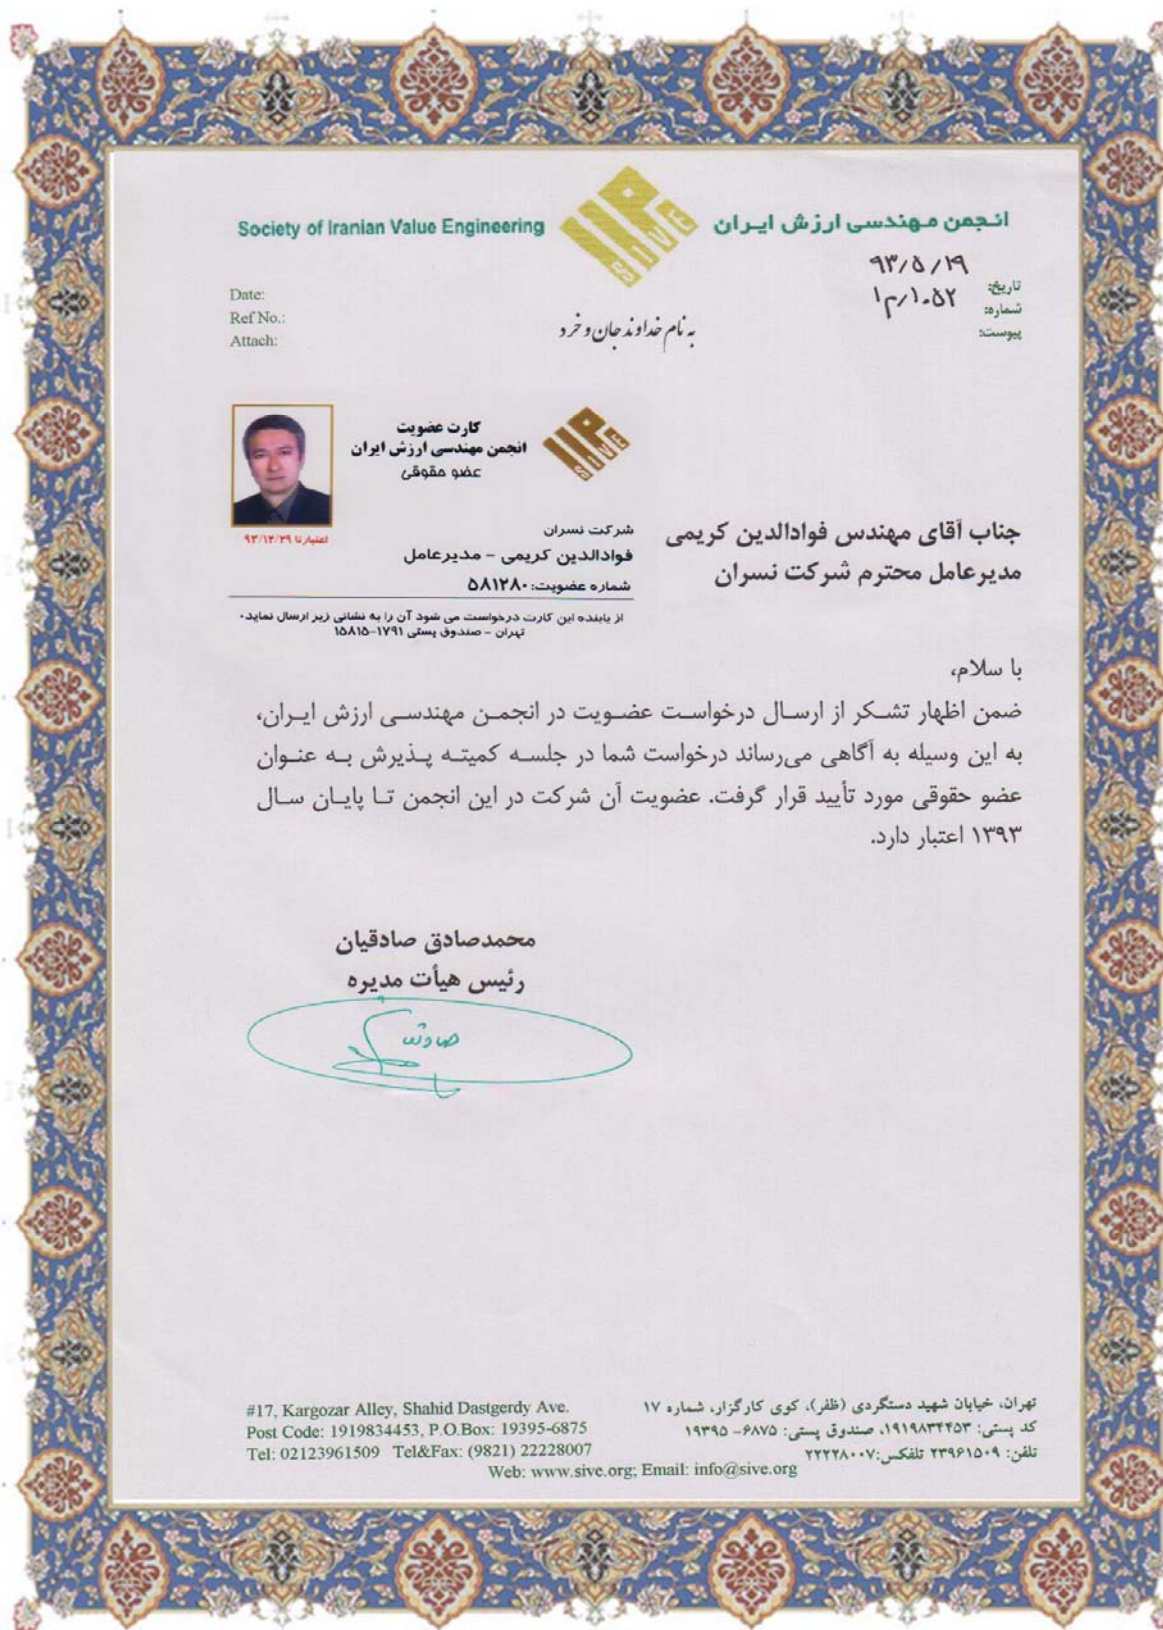 Society of Iranian Value Engineering
SIVE
انجمن مهندسی ارزش ایران
Date:
Ref No.:
Attach:
تاریخ: ۹۳/۵/۱۹
شماره: ۱۰۵۲/م۱
پیوست:
به نام خداوند جان و خرد
کارت عضویت
انجمن مهندسی ارزش ایران
عضو حقوقی
SIVE
اعتبار تا ۹۳/۱۲/۲۹
شرکت نسران
فوادالدین کریمی - مدیرعامل
شماره عضویت: ۵۸۱۲۸۰
از یابنده این کارت درخواست می شود آن را به نشانی زیر ارسال نماید.
تهران - صندوق پستی ۱۷۹۱-۱۵۸۱۵
جناب آقای مهندس فوادالدین کریمی
مدیرعامل محترم شرکت نسران
با سلام،
ضمن اظهار تشکر از ارسال درخواست عضویت در انجمن مهندسی ارزش ایران،
به این وسیله به آگاهی می‌رساند درخواست شما در جلسه کمیته پذیرش به عنوان
عضو حقوقی مورد تأیید قرار گرفت. عضویت آن شرکت در این انجمن تا پایان سال
۱۳۹۳ اعتبار دارد.
محمدصادق صادقیان
رئیس هیأت مدیره
#17, Kargozar Alley, Shahid Dastgerdy Ave.
Post Code: 1919834453, P.O.Box: 19395-6875
Tel: 02123961509 Tel&Fax: (9821) 22228007
تهران، خیابان شهید دستگردی (ظفر)، کوی کارگزار، شماره ۱۷
کد پستی: ۱۹۱۹۸۳۴۴۵۳، صندوق پستی: ۶۸۷۵- ۱۹۳۹۵
تلفن: ۲۳۹۶۱۵۰۹ تلفکس:۲۲۲۲۸۰۰۷
Web: www.sive.org; Email: info@sive.org